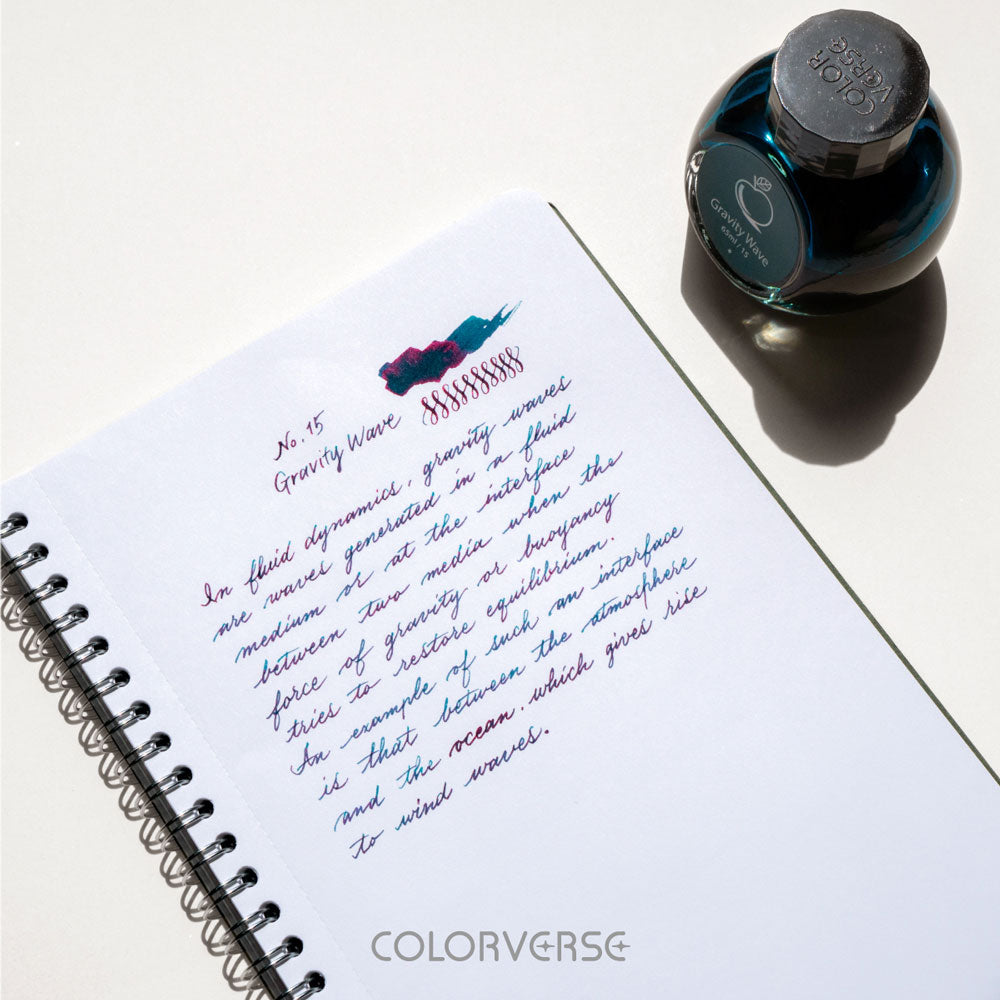 COLOR
VERSE
Gravity Wave
65ml / 15
No. 15
Gravity Wave
In fluid dynamics, gravity waves
are waves generated in a fluid
medium or at the interface
between two media when the
force of gravity or buoyancy
tries to restore equilibrium.
An example of such an interface
is that between the atmosphere
and the ocean, which gives rise
to wind waves.
COLORVERSE